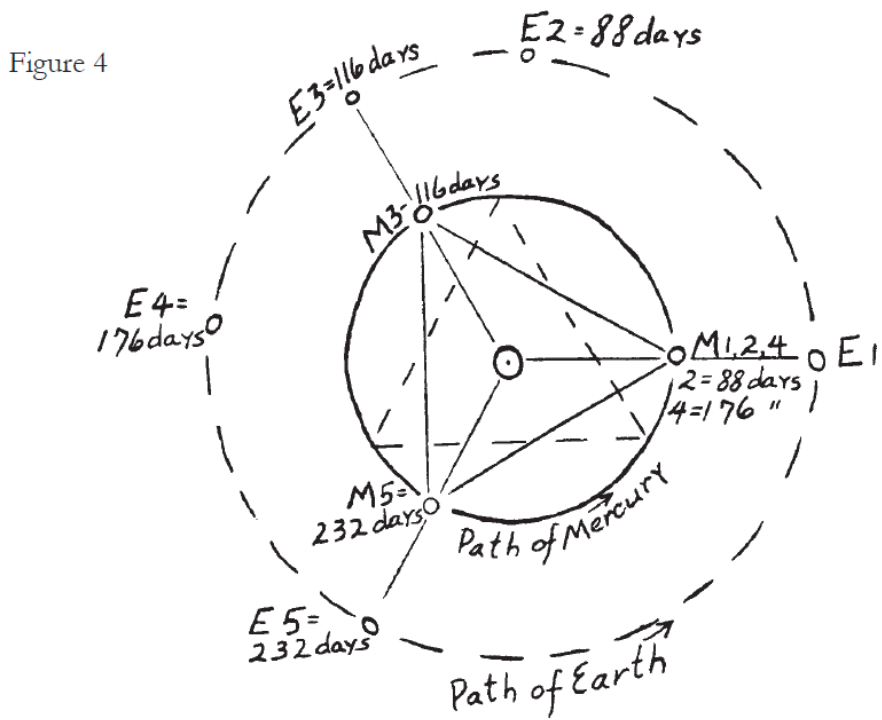 Figure 4
E2=88days
E3=116days
M3-116days
E4=
176days
M1,2,4
2=88days
4=176 "
E1
M5=
232days
Path of Mercury
E5=
232days
Path of Earth